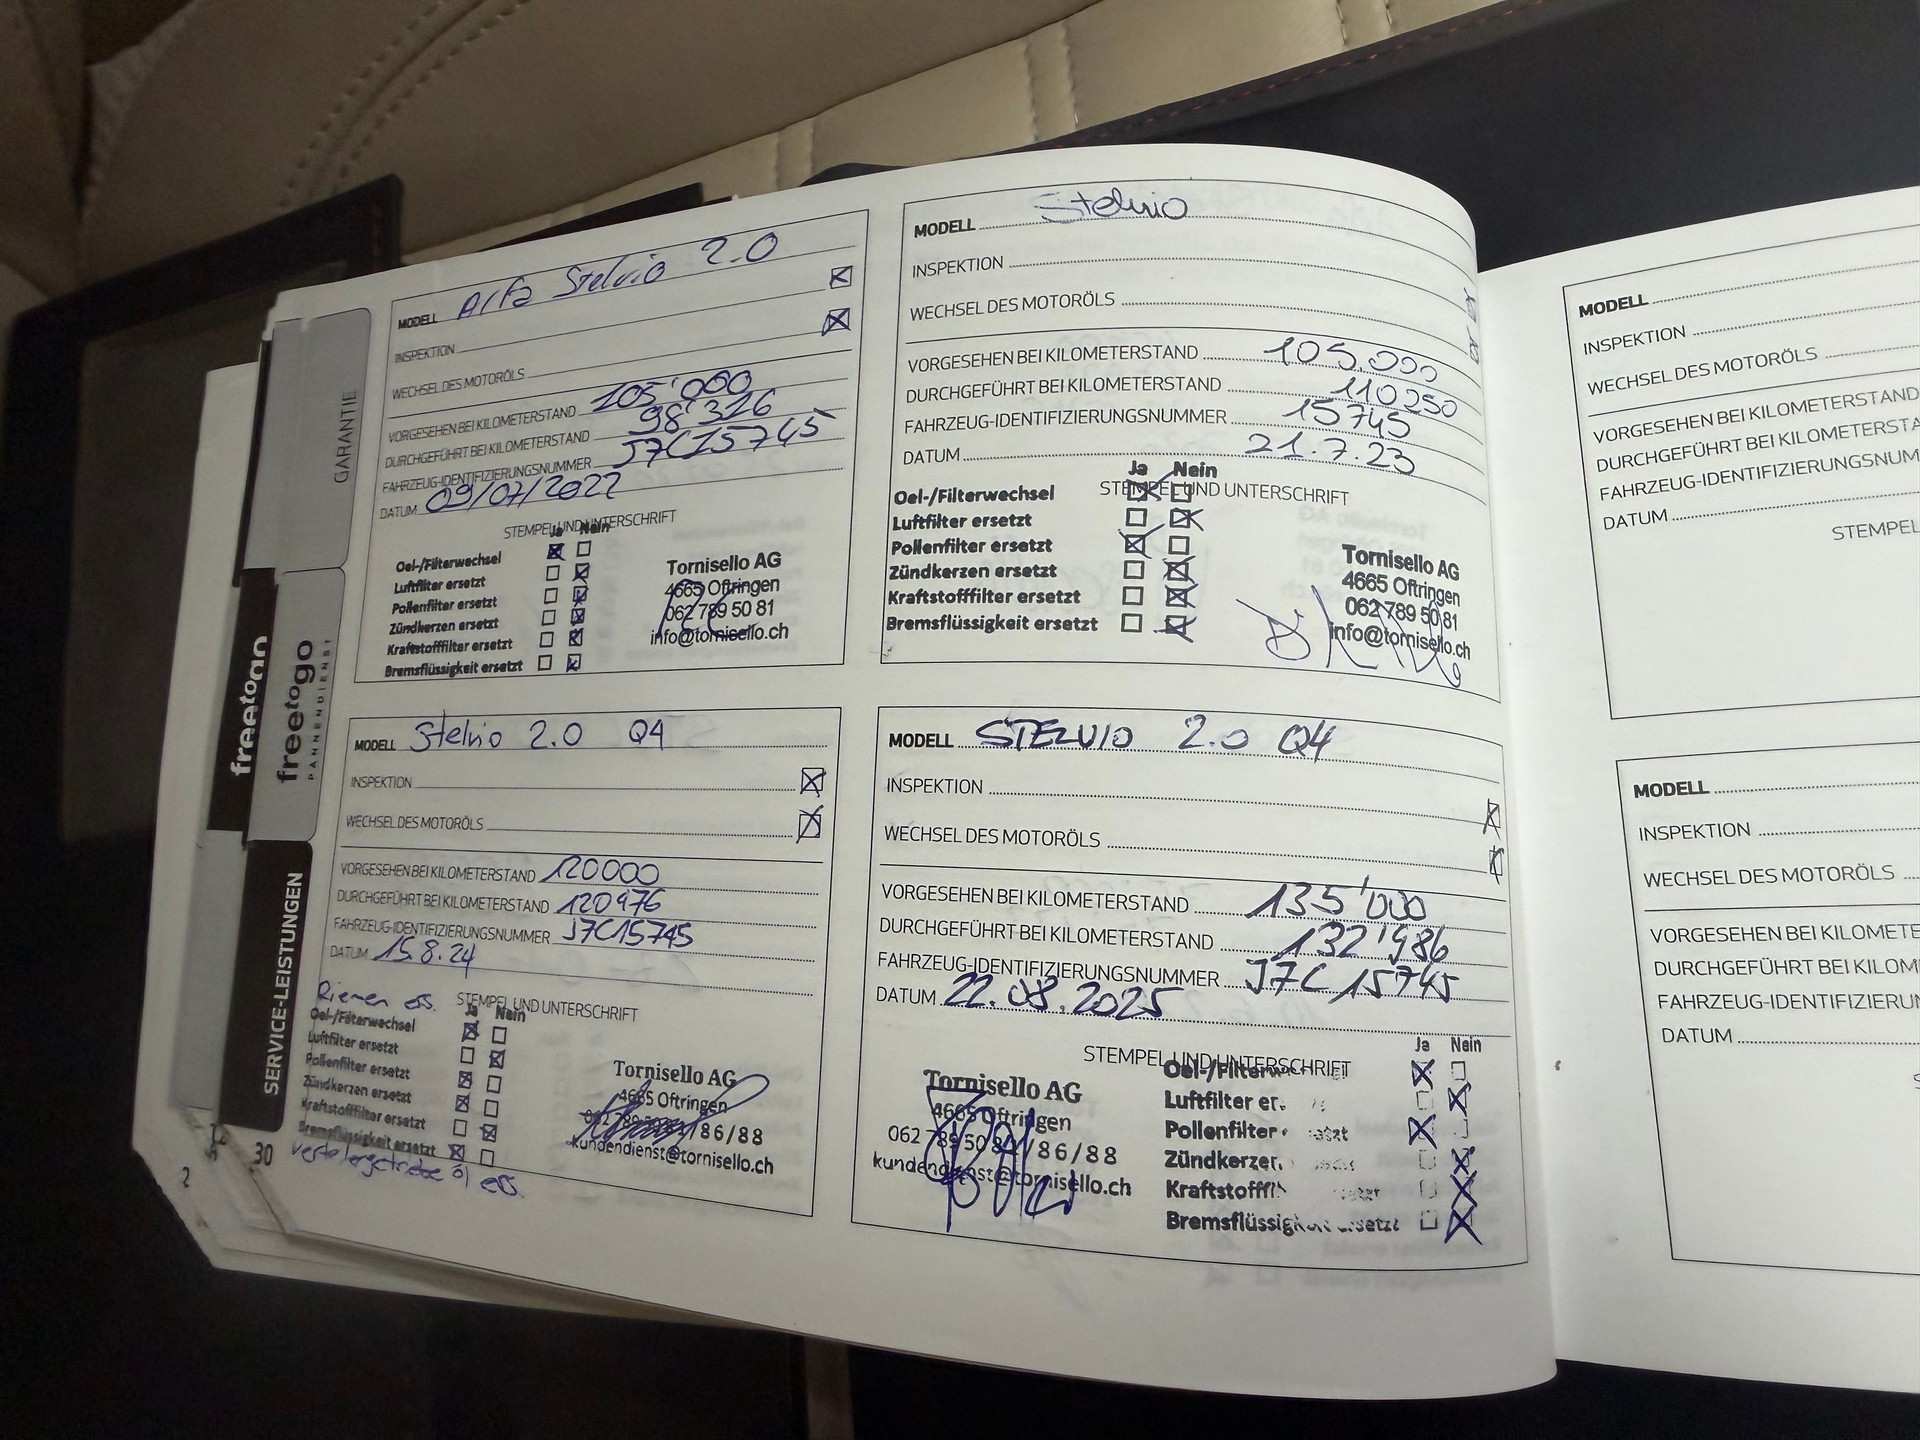 GARANTIE
freetogo
freetogo
PANNENDIENST
SERVICE-LEISTUNGEN
30
MODELL Alfa Stelvio 2.0
INSPEKTION
WECHSEL DES MOTORÖLS
VORGESEHEN BEI KILOMETERSTAND 105'000
DURCHGEFÜHRT BEI KILOMETERSTAND 98'326
FAHRZEUG-IDENTIFIZIERUNGSNUMMER J7C15745
DATUM 09/07/2022
STEMPEL UND UNTERSCHRIFT
Ja Nein
Oel-/Filterwechsel
Luftfilter ersetzt
Pollenfilter ersetzt
Zündkerzen ersetzt
Kraftstofffilter ersetzt
Bremsflüssigkeit ersetzt
Tornisello AG
4665 Oftringen
062 789 50 81
info@tornisello.ch
MODELL Stelvio
INSPEKTION
WECHSEL DES MOTORÖLS
VORGESEHEN BEI KILOMETERSTAND 105.000
DURCHGEFÜHRT BEI KILOMETERSTAND 110250
FAHRZEUG-IDENTIFIZIERUNGSNUMMER 15745
DATUM 21.7.23
Ja Nein
STEMPEL UND UNTERSCHRIFT
Oel-/Filterwechsel
Luftfilter ersetzt
Pollenfilter ersetzt
Zündkerzen ersetzt
Kraftstofffilter ersetzt
Bremsflüssigkeit ersetzt
Tornisello AG
4665 Oftringen
062 789 50 81
info@tornisello.ch
MODELL Stelvio 2.0 Q4
INSPEKTION
WECHSEL DES MOTORÖLS
VORGESEHEN BEI KILOMETERSTAND 120000
DURCHGEFÜHRT BEI KILOMETERSTAND 120976
FAHRZEUG-IDENTIFIZIERUNGSNUMMER J7C15745
DATUM 15.8.24
Riemen ers.
STEMPEL UND UNTERSCHRIFT
Ja Nein
Oel-/Filterwechsel
Luftfilter ersetzt
Pollenfilter ersetzt
Zündkerzen ersetzt
Kraftstofffilter ersetzt
Bremsflüssigkeit ersetzt
Verteilergetriebe öl ers.
Tornisello AG
4665 Oftringen
/86/88
kundendienst@tornisello.ch
MODELL STELVIO 2.0 Q4
INSPEKTION
WECHSEL DES MOTORÖLS
VORGESEHEN BEI KILOMETERSTAND 135'000
DURCHGEFÜHRT BEI KILOMETERSTAND 132'986
FAHRZEUG-IDENTIFIZIERUNGSNUMMER J7C15745
DATUM 22.08.2025
STEMPEL UND UNTERSCHRIFT
Ja Nein
Oel-/Filterw
Luftfilter er
Pollenfilter
Zündkerzen
Kraftstofffi
Bremsflüssigkeit ersetzt
Tornisello AG
4665 Oftringen
062 789 50 82/86/88
kundendienst@tornisello.ch
MODELL
INSPEKTION
WECHSEL DES MOTORÖLS
VORGESEHEN BEI KILOMETERSTAND
DURCHGEFÜHRT BEI KILOMETERSTA
FAHRZEUG-IDENTIFIZIERUNGSNUM
DATUM
STEMPEL
MODELL
INSPEKTION
WECHSEL DES MOTORÖLS
VORGESEHEN BEI KILOMETE
DURCHGEFÜHRT BEI KILOM
FAHRZEUG-IDENTIFIZIERUN
DATUM